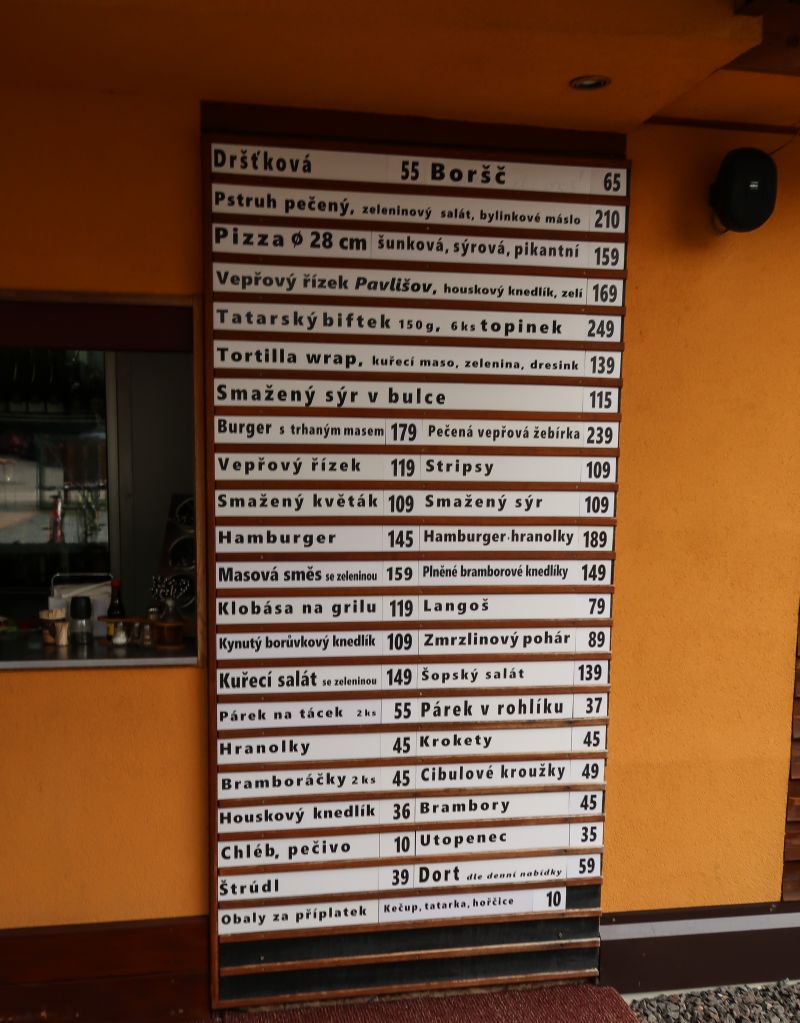 Dršťková 55 Boršč 65
Pstruh pečený, zeleninový salát, bylinkové máslo 210
Pizza ø 28 cm šunková, sýrová, pikantní 159
Vepřový řízek Pavlišov, houskový knedlík, zelí 169
Tatarský biftek 150g, 6ks topinek 249
Tortilla wrap, kuřecí maso, zelenina, dresink 139
Smažený sýr v bulce 115
Burger s trhaným masem 179 Pečená vepřová žebírka 239
Vepřový řízek 119 Stripsy 109
Smažený květák 109 Smažený sýr 109
Hamburger 145 Hamburger·hranolky 189
Masová směs se zeleninou 159 Plněné bramborové knedlíky 149
Klobása na grilu 119 Langoš 79
Kynutý borůvkový knedlík 109 Zmrzlinový pohár 89
Kuřecí salát se zeleninou 149 Šopský salát 139
Párek na tácek 2ks 55 Párek v rohlíku 37
Hranolky 45 Krokety 45
Bramboráčky 2ks 45 Cibulové kroužky 49
Houskový knedlík 36 Brambory 45
Chléb, pečivo 10 Utopenec 35
Štrúdl 39 Dort dle denní nabídky 59
Obaly za příplatek Kečup, tatarka, hořčice 10